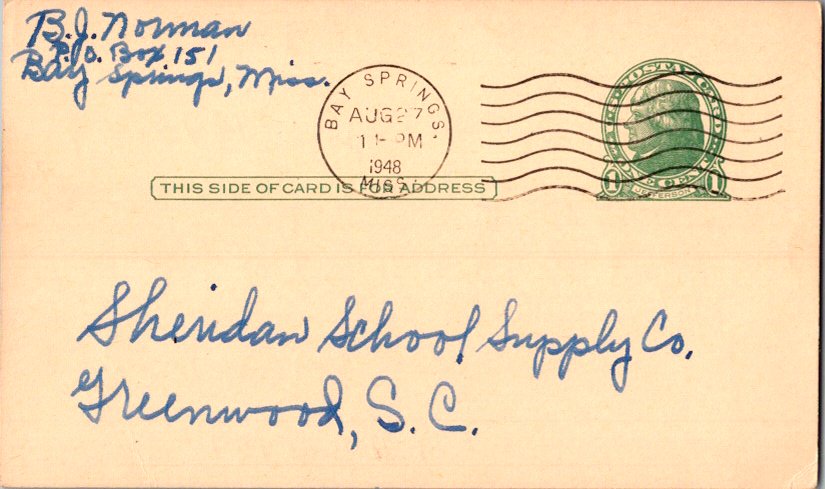 B.J. Norman
P.O. Box 151
Bay Springs, Miss.
BAY SPRINGS.
AUG 27
PM
1948
MISS.
U.S. POSTAL CARD
1 ONE CENT 1
JEFFERSON
THIS SIDE OF CARD IS FOR ADDRESS
Sheridan School Supply Co.
Greenwood, S. C.